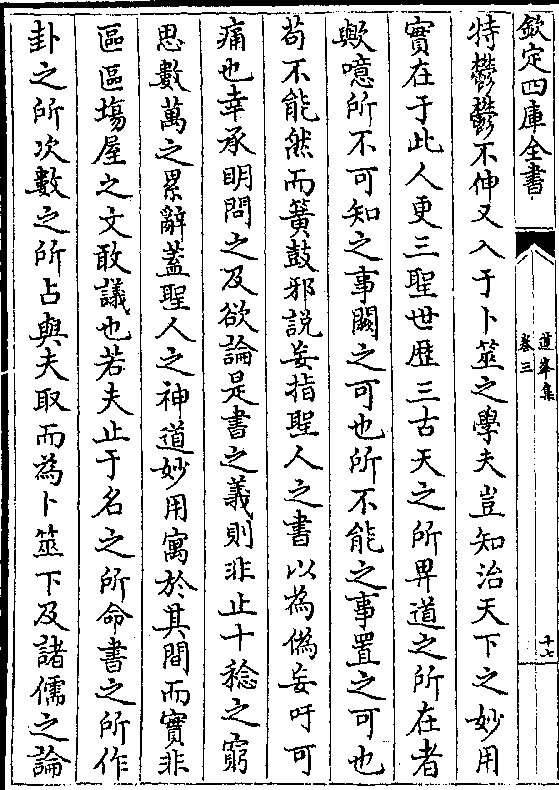 欽定四庫全書
卷三
十七
特鬱鬱不伸又入于卜筮之學夫豈知治天下之妙用
實在于此人更三聖世歴三古天之所畀道之所在者
歟噫所不可知之事闕之可也所不能之事置之可也
苟不能然而簧鼓邪説妄指聖人之書以為偽妄吁可
痛也幸承眀問之及欲論是書之義則非止十稔之窮
思數萬之累辭蓋聖人之神道妙用寓於其間而實非
區區塲屋之文敢議也若夫止于名之所命書之所作
卦之所次數之所占與夫取而為卜筮下及諸儒之論